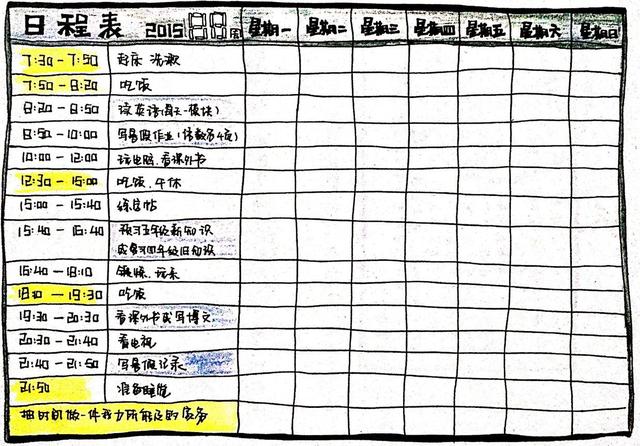 日程表 2015 周 星期一 星期二 星期三 星期四 星期五 星期六 星期日
7:30 - 7:50 起床 洗漱
7:50 - 8:20 吃饭
8:20 - 8:50 读英语(两天一模块)
8:50 - 10:00 写暑假作业(语数各4页)
10:00 - 12:00 玩电脑.看课外书
12:30 - 15:00 吃饭.午休
15:00 - 15:40 练字帖
15:40 - 16:40 预习五年级新知识
或复习四年级旧知识
16:40 - 18:10 锻炼.玩耍
18:10 - 19:30 吃饭
19:30 - 20:30 看课外书或写博文
20:30 - 21:40 看电视
21:40 - 21:50 写暑假记录
21:50 准备睡觉
抽时间做一件我力所能及的家务